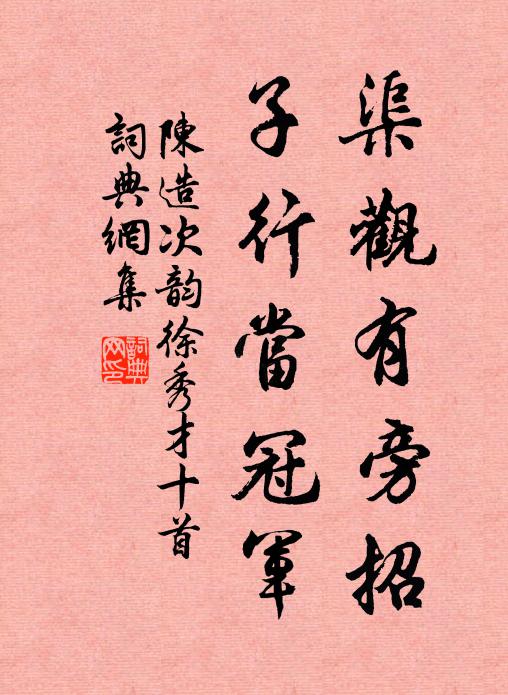 渠觀有旁招
子行當冠軍
陳造次韵徐秀才十首
詞典網集
詞典網印